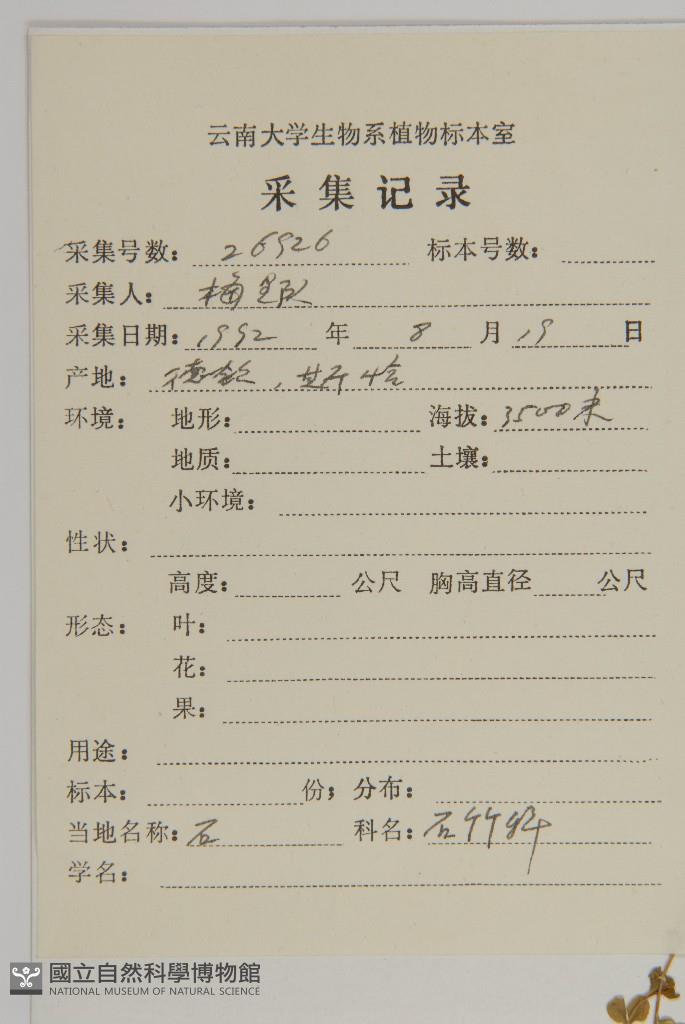 云南大学生物系植物标本室
采集记录
采集号数： 26926 标本号数：
采集人： 梅里队
采集日期： 1992 年 8 月 19 日
产地： 德钦，
环境： 地形： 海拔： 3500米
地质： 土壤：
小环境：
性状：
高度： 公尺 胸高直径 公尺
形态： 叶：
花：
果：
用途：
标本： 份； 分布：
当地名称： 石 科名： 石竹科
学名：
國立自然科學博物館
NATIONAL MUSEUM OF NATURAL SCIENCE